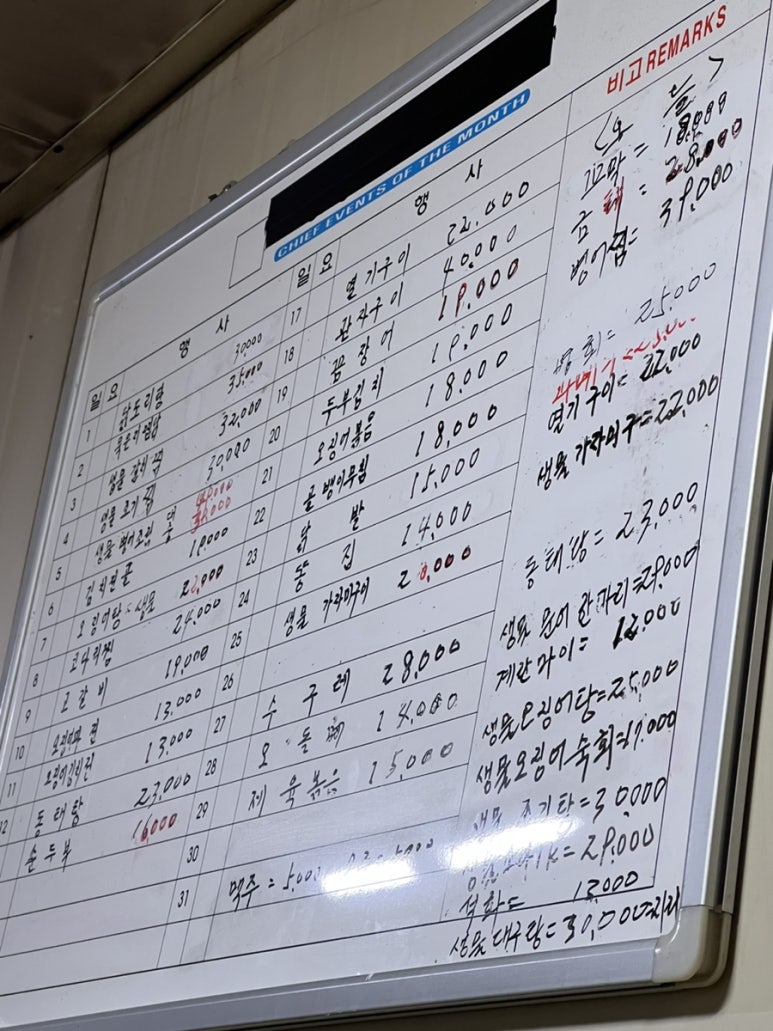 CHIEF EVENTS OF THE MONTH
비고 REMARKS
일 요 행 사
1 닭도리탕 30,000
2 묵은지닭탕 35,000
3 생물 갈치찜 32,000
4 생물 조기찜 30,000
5 생물
6 김치전골
7 오징어탕-생물
8 고사리찜 24,000
9 고갈비 19,000
10 13,000
11 오징어김치전 13,000
12 동태탕 23,000
순두부 16000
일 요 행 사
17 열기구이 22,000
18 관자구이 40,000
19 꼼장어 19,000
20 두부김치 19,000
21 오징어볶음 18,000
22 골뱅이무침 18,000
23 닭발 15,000
24 똥집 14,000
25 생물 가자미구이
26
27 수구레 28,000
28 오돌뼈 14,000
29 제육볶음 15,000
30
31 맥주=5,000
<오늘>
꼬막=18,000
금태=28,000
병어찜=39,000
25,000
과메기
열기구이=22,000
생물 가자미구=22,000
동태탕=23,000
생물 문어 한마리=29,000
계란마이=12,000
생물오징어탕=25,000
생물오징어숙회=17,000
생물 조기탕=30,000
=29,000
석화=13,000
생물대구탕=30,000=지리